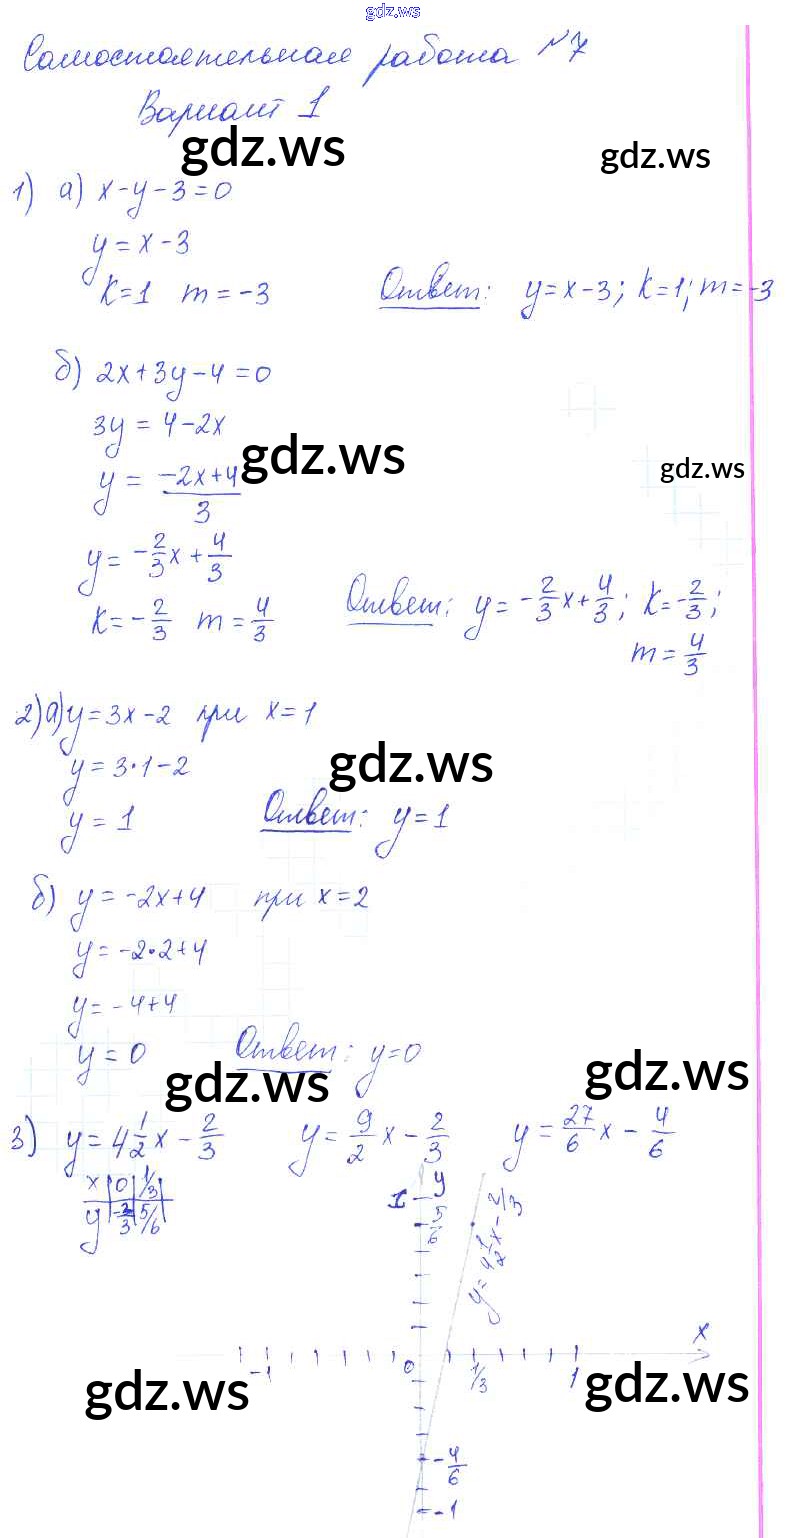 gdz.ws
Самостоятельная работа №7
Вариант 1
gdz.ws
gdz.ws
1) а) x-y-3=0
y=x-3
k=1 m=-3 Ответ: y=x-3; k=1; m=-3
б) 2x+3y-4=0
3y=4-2x
gdz.ws
gdz.ws
y=(-2x+4)/3
y=-2/3x+4/3
k=-2/3 m=4/3 Ответ: y=-2/3x+4/3; k=-2/3;
m=4/3
2) а) y=3x-2 при x=1
y=3·1-2
gdz.ws
y=1 Ответ: y=1
б) y=-2x+4 при x=2
y=-2·2+4
y=-4+4
y=0 Ответ: y=0
gdz.ws
gdz.ws
3) y=4 1/2x-2/3 y=9/2x-2/3 y=27/6x-4/6
x 0 1/3
y -2/3 5/6
1 y
5/6
y=4 1/2x-2/3
x
-1 0 1/3 1
gdz.ws
gdz.ws
-4/6
-1